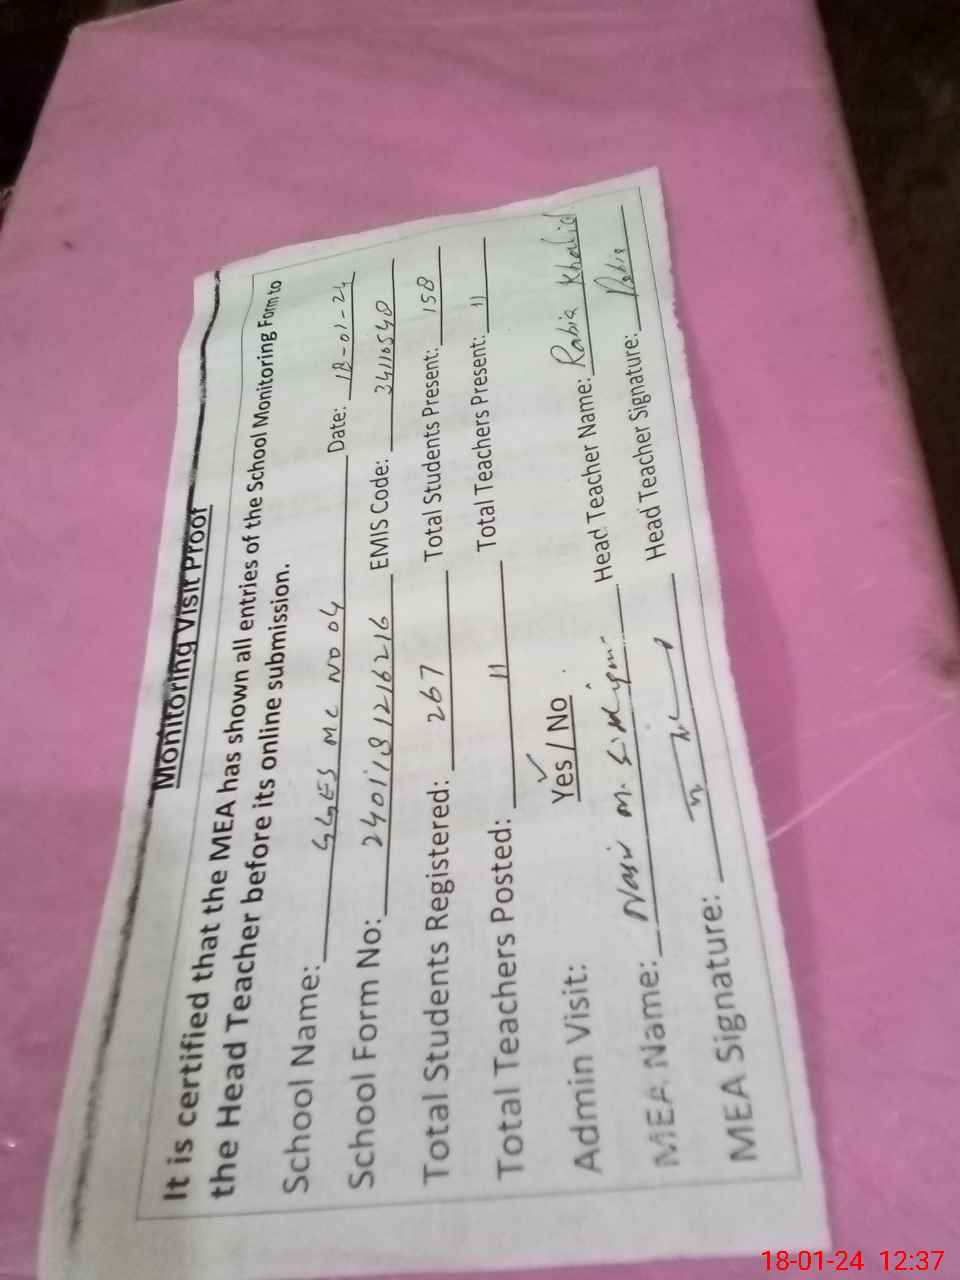 Monitoring Visit Proof
It is certified that the MEA has shown all entries of the School Monitoring Form to
the Head Teacher before its online submission.
School Name: GGES MC NO 04 Date: 18-01-24
School Form No: 2401181216216 EMIS Code: 34110540
Total Students Registered: 267 Total Students Present: 158
Total Teachers Posted: 11 Total Teachers Present: 11
Admin Visit: Yes / No
MEA Name: Nasir M. Head Teacher Name: Rabia Khalid
MEA Signature: Head Teacher Signature: Rabia
18-01-24 12:37